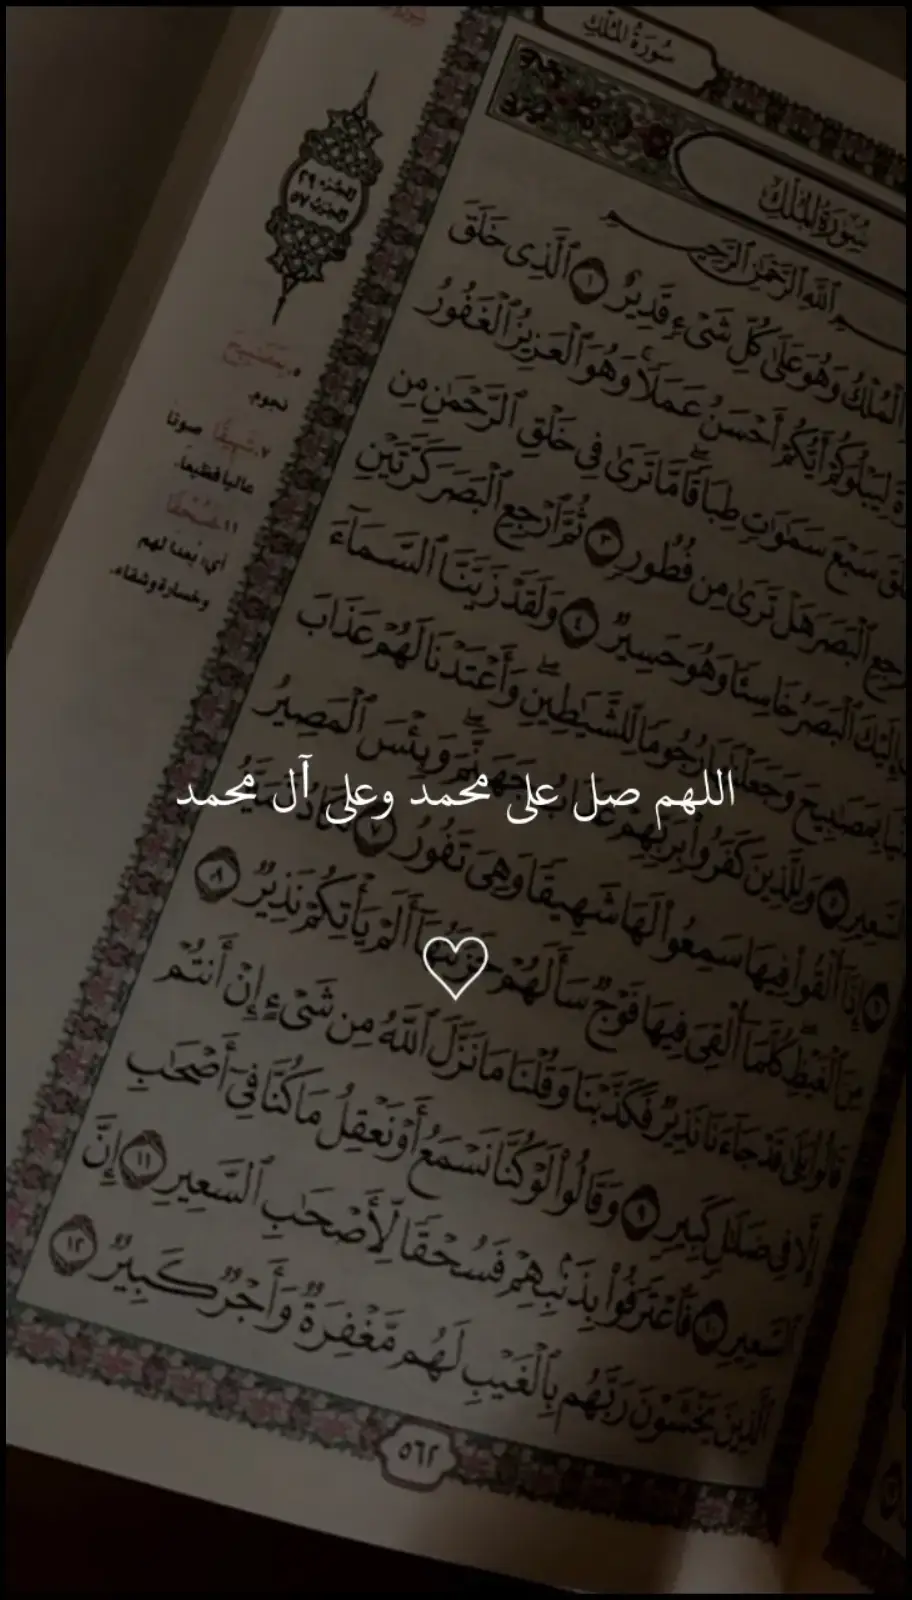 سُورَةُ المُلْكِ
الجزء ٢٩
الحزب ٥٧
سُورَةُ المُلْكِ
ٱللَّهِ ٱلرَّحْمَٰنِ ٱلرَّحِيمِ
ٱلْمُلْكُ وَهُوَ عَلَىٰ كُلِّ شَىْءٍ قَدِيرٌ ١ ٱلَّذِى خَلَقَ
لِيَبْلُوَكُمْ أَيُّكُمْ أَحْسَنُ عَمَلًا وَهُوَ ٱلْعَزِيزُ ٱلْغَفُورُ
سَبْعَ سَمَٰوَٰتٍ طِبَاقًا مَّا تَرَىٰ فِى خَلْقِ ٱلرَّحْمَٰنِ مِن
ٱلْبَصَرَ هَلْ تَرَىٰ مِن فُطُورٍ ٣ ثُمَّ ٱرْجِعِ ٱلْبَصَرَ كَرَّتَيْنِ
إِلَيْكَ ٱلْبَصَرُ خَاسِئًا وَهُوَ حَسِيرٌ ٤ وَلَقَدْ زَيَّنَّا ٱلسَّمَآءَ
بِمَصَٰبِيحَ وَجَعَلْنَٰهَا رُجُومًا لِّلشَّيَٰطِينِ وَأَعْتَدْنَا لَهُمْ عَذَابَ
ٱلسَّعِيرِ ٥ وَلِلَّذِينَ كَفَرُوا۟ بِرَبِّهِمْ عَذَابُ جَهَنَّمَ وَبِئْسَ ٱلْمَصِيرُ
٦ إِذَآ أُلْقُوا۟ فِيهَا سَمِعُوا۟ لَهَا شَهِيقًا وَهِىَ تَفُورُ ٧ تَكَادُ تَمَيَّزُ
مِنَ ٱلْغَيْظِ كُلَّمَآ أُلْقِىَ فِيهَا فَوْجٌ سَأَلَهُمْ خَزَنَتُهَآ أَلَمْ يَأْتِكُمْ نَذِيرٌ ٨
قَالُوا۟ بَلَىٰ قَدْ جَآءَنَا نَذِيرٌ فَكَذَّبْنَا وَقُلْنَا مَا نَزَّلَ ٱللَّهُ مِن شَىْءٍ إِنْ أَنتُمْ
إِلَّا فِى ضَلَٰلٍ كَبِيرٍ ٩ وَقَالُوا۟ لَوْ كُنَّا نَسْمَعُ أَوْ نَعْقِلُ مَا كُنَّا فِىٓ أَصْحَٰبِ
ٱلسَّعِيرِ ١٠ فَٱعْتَرَفُوا۟ بِذَنۢبِهِمْ فَسُحْقًا لِّأَصْحَٰبِ ٱلسَّعِيرِ ١١ إِنَّ
ٱلَّذِينَ يَخْشَوْنَ رَبَّهُم بِٱلْغَيْبِ لَهُم مَّغْفِرَةٌ وَأَجْرٌ كَبِيرٌ ١٢
٥٦٢
٥. بمصابيح
نجوم.
٧. شهيقًا صوتا
عاليا فظيعا.
١١. فسحقًا
أي: بعدا لهم
وخسارة وشقاء.
اللهم صل على محمد وعلى آل محمد
♡